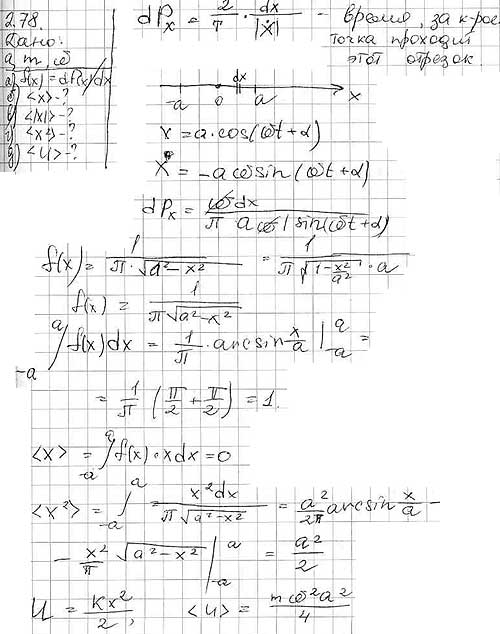 2.78.
Дано:
a, m, ω
а) f(x) = dP(x)/dx
б) <x> - ?
в) <|x|> - ?
г) <x²> - ?
д) <U> - ?
dPₓ = 2/T · dx/|ẋ| - время, за к-рое
точка проходит
этот отрезок.
dx
-a 0 a x
x = a·cos(ωt+α)
ẋ = -aω sin(ωt+α)
dPₓ = ω dx / π aω |sin(ωt+α)|
f(x) = 1/(π·√(a²-x²)) = 1/(π√(1-x²/a²)·a)
f(x) = 1/(π√(a²-x²))
∫₋ₐᵃ f(x)dx = 1/π · arcsin x/a |₋ₐᵃ =
= 1/π (π/2 + π/2) = 1.
<x> = ∫₋ₐᵃ f(x)·x dx = 0
<x²> = ∫₋ₐᵃ x²dx/(π√(a²-x²)) = a²/2π arcsin x/a -
- x²/π √(a²-x²) |₋ₐᵃ = a²/2
U = Kx²/2, <U> = mω²a²/4